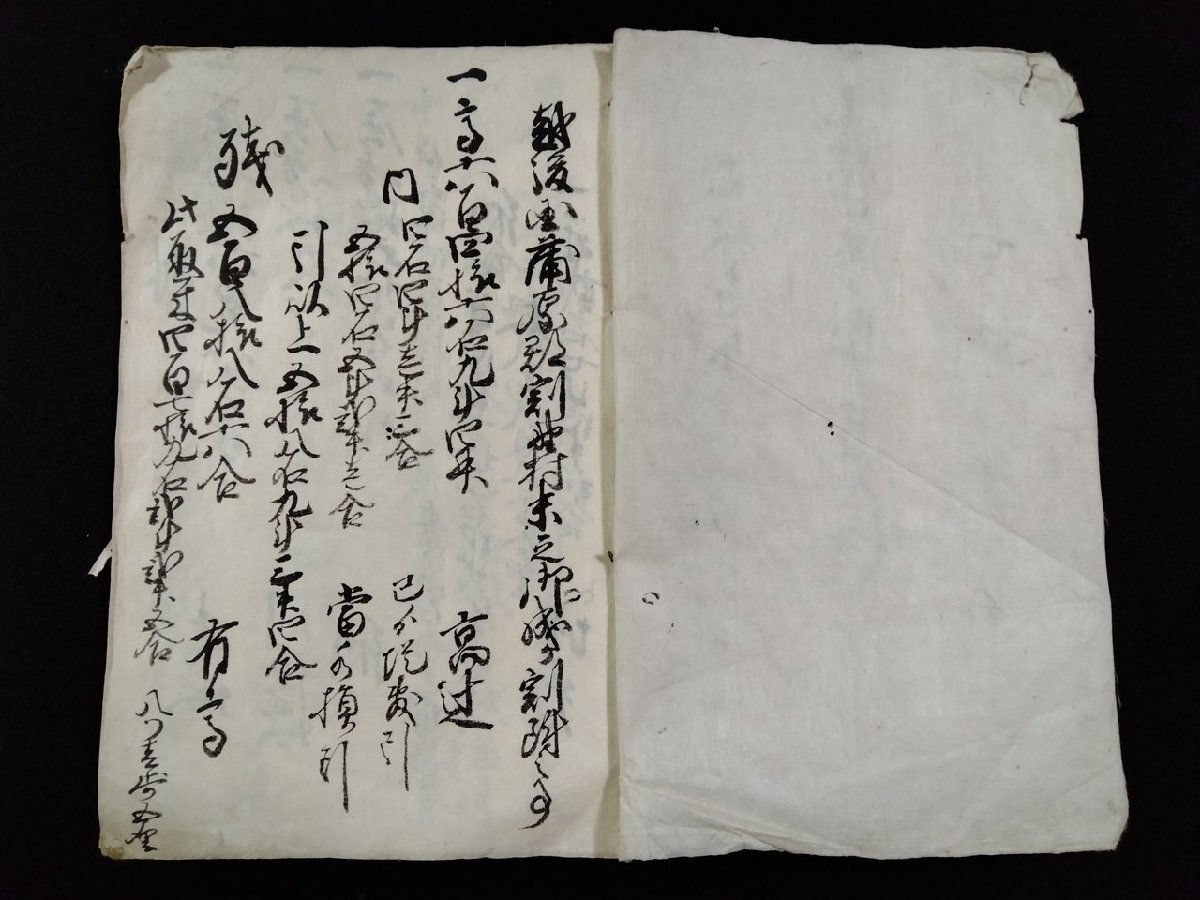 越後国蒲原郡割野村未之御成ヶ割附之事
一高六百四拾六石九斗四升 高辻
内四石四斗壱升三合 巳ゟ堤敷引
五拾四石五斗弐升壱合 當水損引
引以上一五拾八石九斗三升四合
残五百八拾八石六合 有高
此取米四百七拾九石弐斗弐升五合 八ツ壱歩五厘